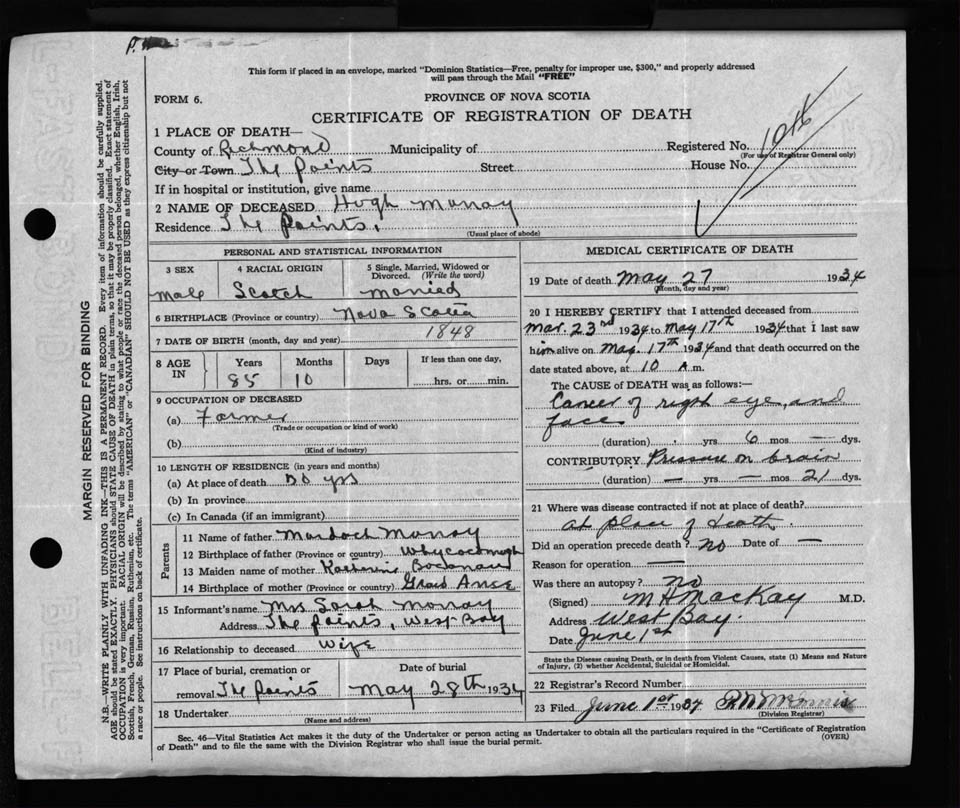 This form if placed in an envelope, marked "Dominion Statistics—Free, penalty for improper use, $300," and properly addressed
will pass through the Mail "FREE"
FORM 6.
PROVINCE OF NOVA SCOTIA
CERTIFICATE OF REGISTRATION OF DEATH
10th
1 PLACE OF DEATH—
County of Richmond Municipality of
Registered No.
(For use of Registrar General only)
City or Town The Points Street House No.
If in hospital or institution, give name
2 NAME OF DECEASED Hugh Murray
Residence The Points,
(Usual place of abode)
PERSONAL AND STATISTICAL INFORMATION
3 SEX 4 RACIAL ORIGIN 5 Single, Married, Widowed or
Divorced. (Write the word)
Male Scotch Married
6 BIRTHPLACE (Province or country) Nova Scotia
7 DATE OF BIRTH (month, day and year) 1848
8 AGE IN Years Months Days If less than one day,
85 10 hrs. or min.
9 OCCUPATION OF DECEASED
(a) Farmer
(Trade or occupation or kind of work)
(b)
(Kind of industry)
10 LENGTH OF RESIDENCE (in years and months)
(a) At place of death yrs
(b) In province
(c) In Canada (if an immigrant)
Parents
11 Name of father Murdoch Murray
12 Birthplace of father (Province or country) Whycocomagh
13 Maiden name of mother
14 Birthplace of mother (Province or country) Grand Anse
15 Informant's name Mrs Sarah Murray
Address The points, West Bay
16 Relationship to deceased Wife
17 Place of burial, cremation or Date of burial
removal The Points May 28th 1934
18 Undertaker
(Name and address)
MEDICAL CERTIFICATE OF DEATH
19 Date of death May 27 1934
(Month, day and year)
20 I HEREBY CERTIFY that I attended deceased from
Mar. 23rd 1934 to May 17th 1934 that I last saw
him alive on May 17th 1934 and that death occurred on the
date stated above, at 10 A.m.
The CAUSE of DEATH was as follows:—
Cancer of right eye, and
face
(duration) yrs 6 mos — dys.
CONTRIBUTORY Pressure on brain
(duration) — yrs — mos 21 dys.
21 Where was disease contracted if not at place of death?
at place of death.
Did an operation precede death? no Date of —
Reason for operation —
Was there an autopsy? no
(Signed) M A MacKay M.D.
Address West Bay.
Date June 1st
State the Disease causing Death, or in death from Violent Causes, state (1) Means and Nature
of Injury, (2) whether Accidental, Suicidal or Homicidal.
22 Registrar's Record Number
23 Filed June 1st 1934
(Division Registrar)
Sec. 46—Vital Statistics Act makes it the duty of the Undertaker or person acting as Undertaker to obtain all the particulars required in the "Certificate of Registration
of Death" and to file the same with the Division Registrar who shall issue the burial permit. (OVER)
MARGIN RESERVED FOR BINDING
N.B.—WRITE PLAINLY WITH UNFADING INK—THIS IS A PERMANENT RECORD. Every item of information should be carefully supplied.
AGE should be stated EXACTLY. PHYSICIANS should STATE CAUSE OF DEATH in plain terms, so that it may be properly classified. Exact statement of
OCCUPATION is very important. RACIAL ORIGIN will be described by stating to what people or race the deceased person belonged, whether English, Irish,
Scottish, French, German, Russian, Ruthenian, etc. The terms "AMERICAN" or "CANADIAN" SHOULD NOT BE USED as they express citizenship but not
a race or people. See instructions on back of certificate.